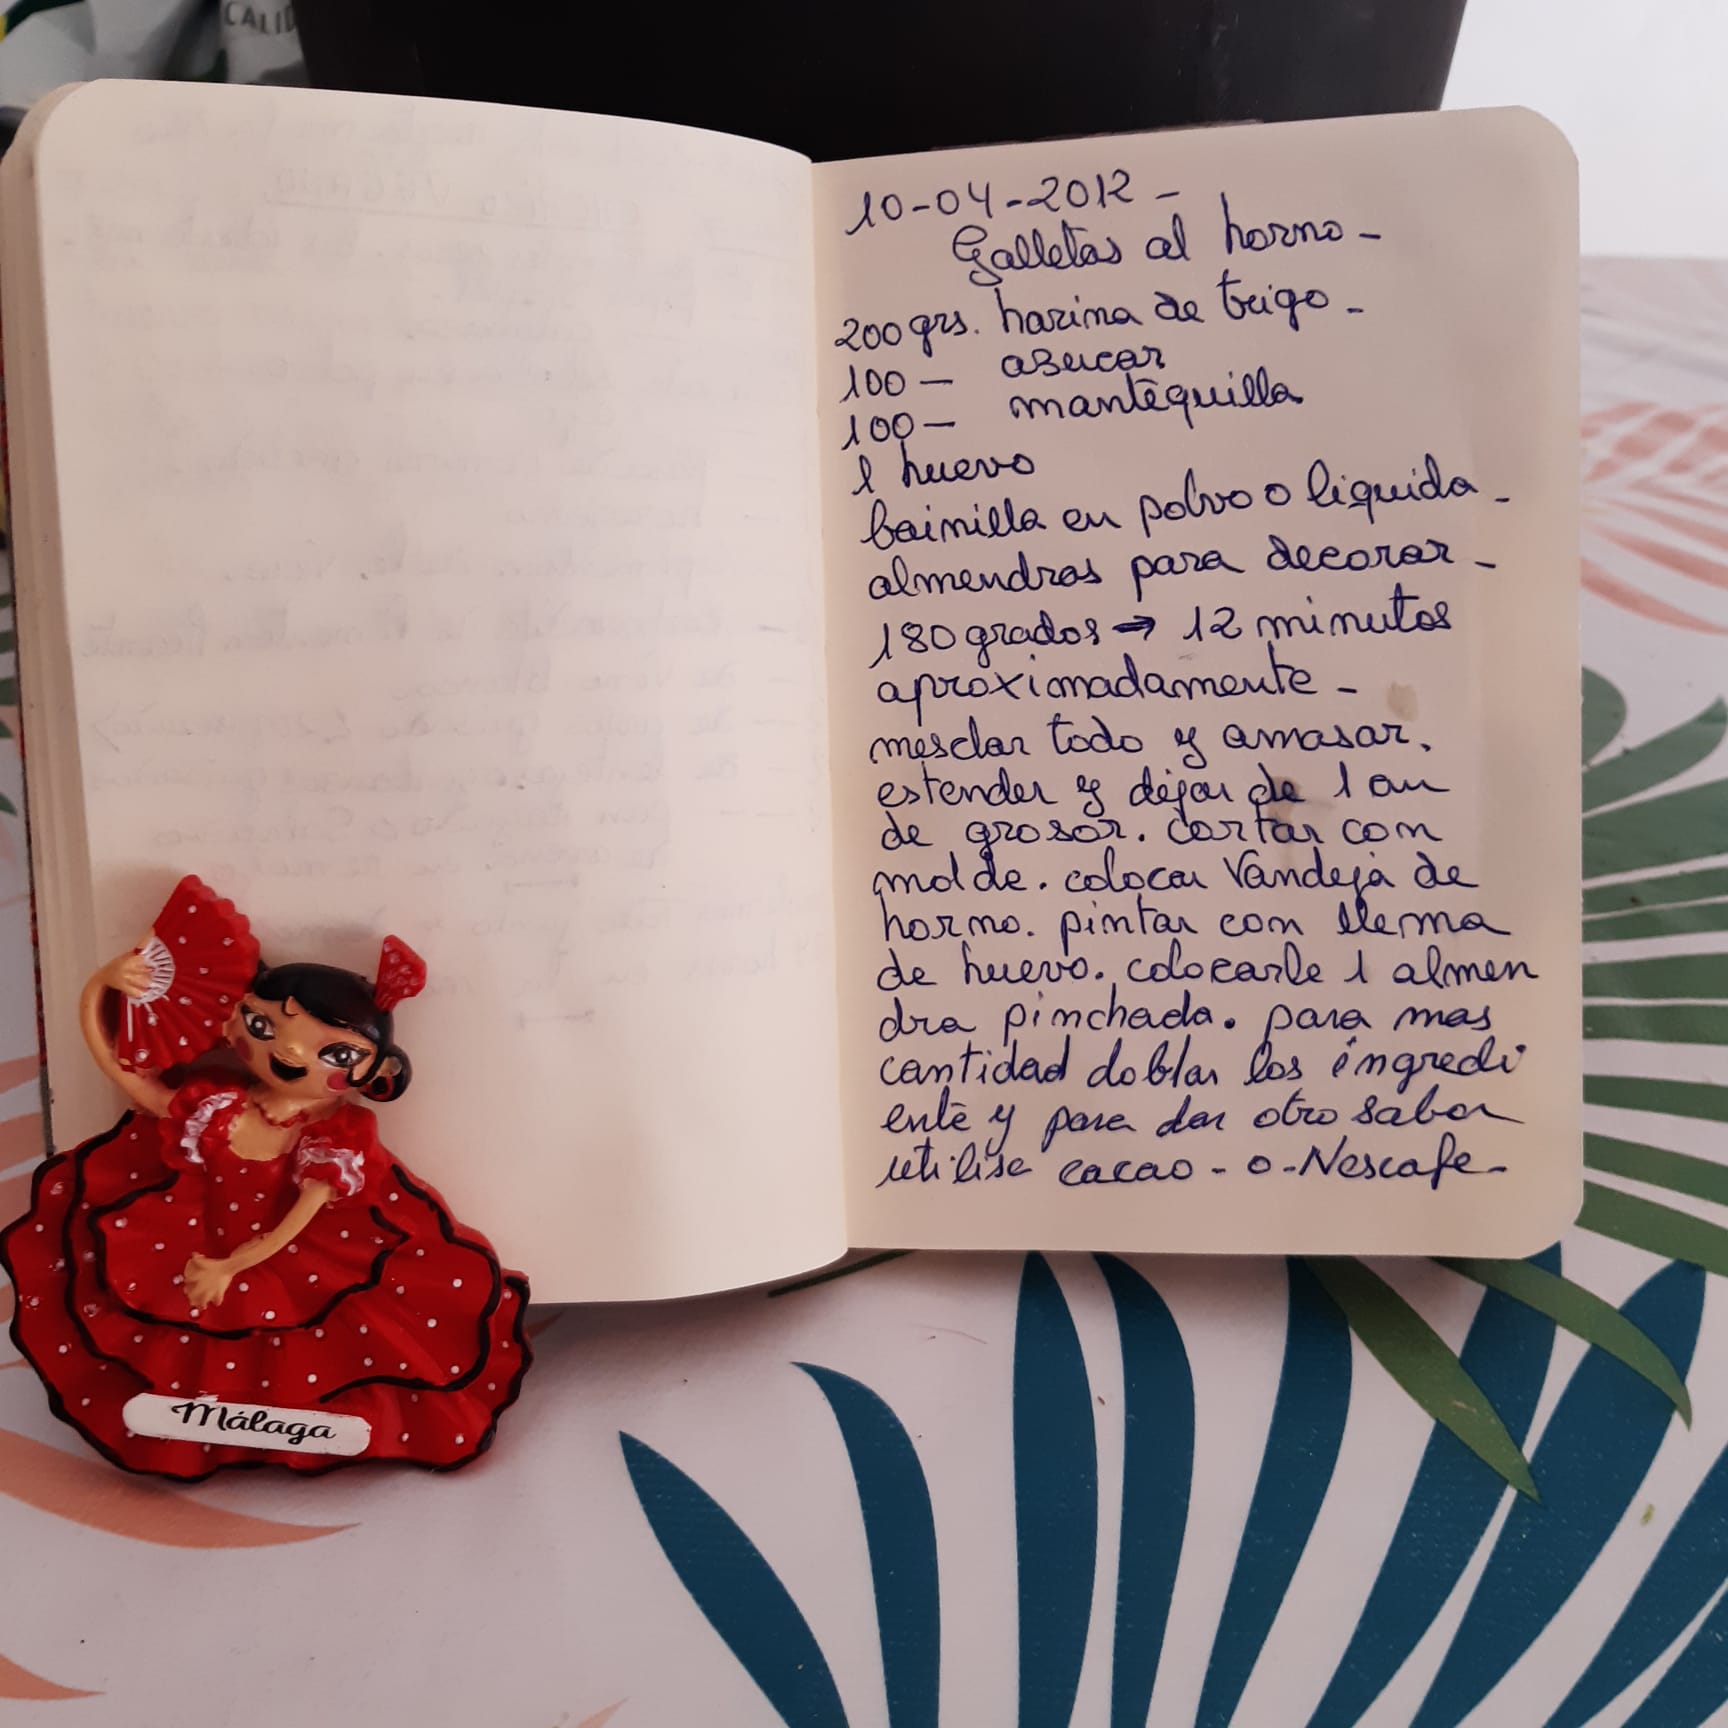 CALID
10-04-2012-
Galletas al horno-
200grs. harina de trigo-
100- asucar
100- mantequilla
1 huevo
bainilla en polvo o liquida-
almendras para decorar-
180grados→ 12 minutos
aproximadamente-
mesclar todo y amasar.
estender y dejar de 1 cm
de grosor. cortar con
molde. colocar Vandeja de
horno. pintar con llema
de huevo. colocarle 1 almen
dra pinchada. para mas
cantidad doblar los ingredi
ente y para dar otro sabor
utilise cacao-o-Nescafe-
Málaga